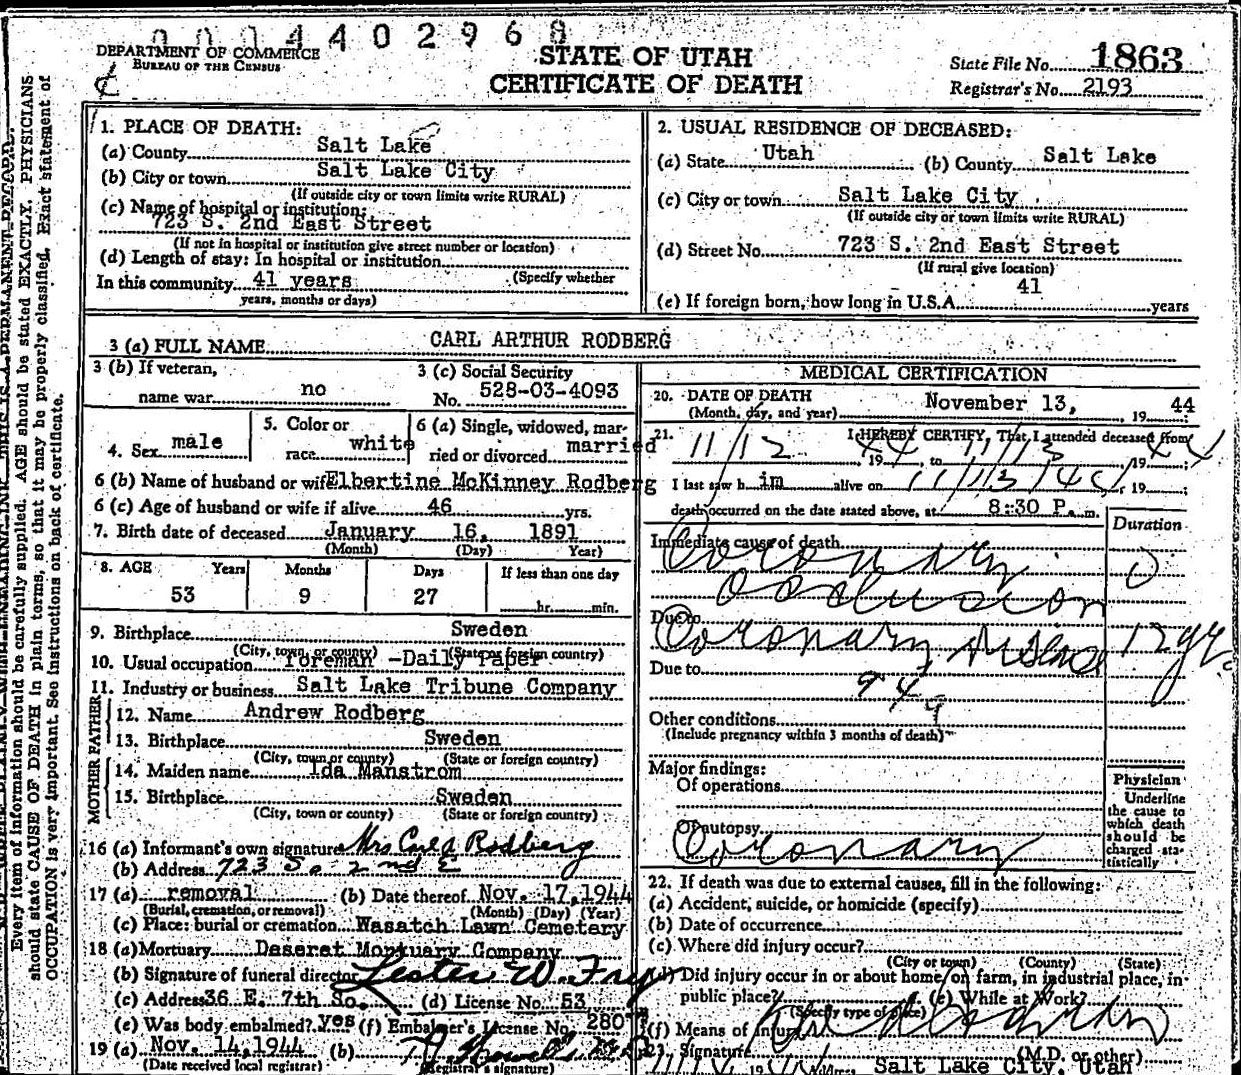 0014402968
DEPARTMENT OF COMMERCE
BUREAU OF THE CENSUS
STATE OF UTAH
CERTIFICATE OF DEATH
State File No. 1863
Registrar's No. 2193
1. PLACE OF DEATH:
(a) County Salt Lake
(b) City or town Salt Lake City
(If outside city or town limits write RURAL)
(c) Name of hospital or institution:
723 S. 2nd East Street
(If not in hospital or institution give street number or location)
(d) Length of stay: In hospital or institution
(Specify whether
In this community 41 years
years, months or days)
2. USUAL RESIDENCE OF DECEASED:
(a) State Utah (b) County Salt Lake
(c) City or town Salt Lake City
(If outside city or town limits write RURAL)
(d) Street No. 723 S. 2nd East Street
(If rural give location)
(e) If foreign born, how long in U.S.A. 41 years
3 (a) FULL NAME CARL ARTHUR RODBERG
3 (b) If veteran,
name war no
3 (c) Social Security
No. 528-03-4093
4. Sex male
5. Color or
race white
6 (a) Single, widowed, mar-
ried or divorced married
6 (b) Name of husband or wife Elbertine McKinney Rodberg
6 (c) Age of husband or wife if alive 46 yrs.
7. Birth date of deceased January 16, 1891
(Month) (Day) Year)
8. AGE Years Months Days If less than one day
53 9 27 hr. min.
9. Birthplace Sweden
(City, town, or county) (State or foreign country)
10. Usual occupation Foreman -Daily Paper
11. Industry or business Salt Lake Tribune Company
FATHER
12. Name Andrew Rodberg
13. Birthplace Sweden
(City, town or county) (State or foreign country)
MOTHER
14. Maiden name Ida Manstrom
15. Birthplace Sweden
(City, town or county) (State or foreign country)
16 (a) Informant's own signature Mrs Carl A Rodberg
(b) Address 723 So 2nd E
17 (a) removal (b) Date thereof Nov. 17, 1944
(Burial, cremation, or removal) (Month) (Day) (Year)
(c) Place: burial or cremation Wasatch Lawn Cemetery
18 (a) Mortuary Deseret Mortuary Company
(b) Signature of funeral director Lester W. Fry
(c) Address 36 E. 7th So. (d) License No. 53
(e) Was body embalmed? yes (f) Embalmer's License No. 280
19 (a) Nov. 14, 1944 (b)
(Date received local registrar) (Registrar's signature)
MEDICAL CERTIFICATION
20. DATE OF DEATH
(Month, day, and year) November 13, 19 44
21. I HEREBY CERTIFY, That I attended deceased from
11/12, 1944 to 11/13, 1944;
I last saw h im alive on 11/13/44, 19 ;
death occurred on the date stated above, at 8:30 P. m.
Duration
Immediate cause of death
Coronary
Occlusion
Due to
Coronary disease 12 yr.
Due to
94a
Other conditions
(Include pregnancy within 3 months of death)
Major findings:
Of operations
Of autopsy
Coronary
Physician
Underline
the cause to
which death
should be
charged sta-
tistically
22. If death was due to external causes, fill in the following:
(a) Accident, suicide, or homicide (specify)
(b) Date of occurrence
(c) Where did injury occur?
(City or town) (County) (State)
(d) Did injury occur in or about home, on farm, in industrial place, in
public place? (e) While at Work?
(Specify type of place)
(f) Means of Injury
23. Signature (M.D. or other)
Address Salt Lake City, Utah
Every item of information should be carefully supplied. AGE should be stated EXACTLY. PHYSICIANS
should state CAUSE OF DEATH in plain terms, so that it may be properly classified. Exact statement of
OCCUPATION is very important. See instructions on back of certificate.